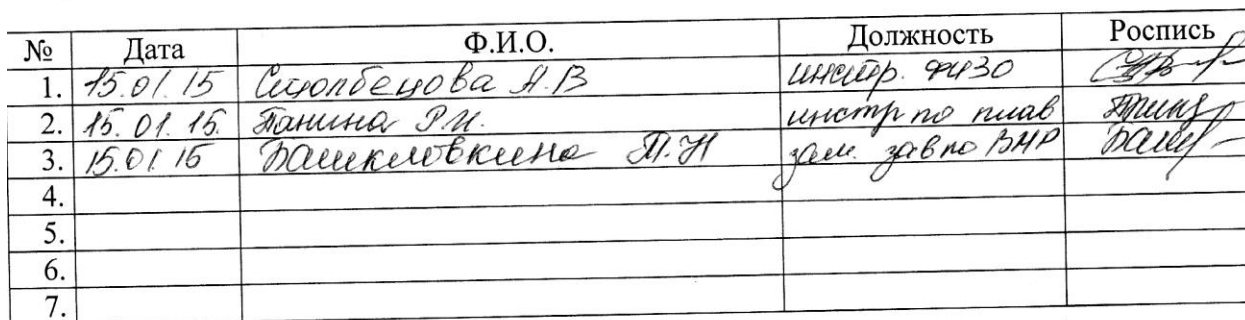 № Дата Ф.И.О. Должность Роспись
1. 15.01.15 Столбецова А.В инстр. ФИЗО
2. 15.01.15. Панина Р.И. инстр по плав
3. 15.01.15 П.Н зам. зав по ВМР
4.
5.
6.
7.